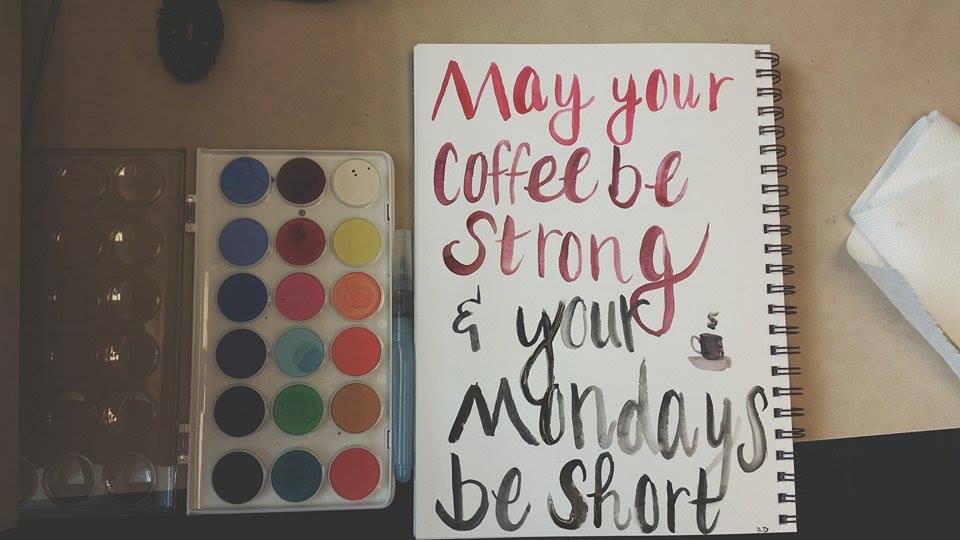 May your
Coffee be
Strong
& your
Mondays
be Short
RD